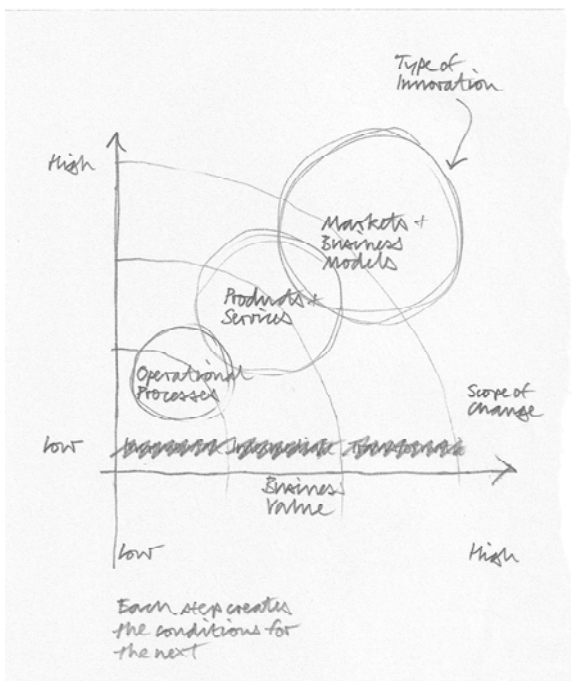 Type of
Innovation
High
Markets +
Business
Models
Products +
Services
Operational
Processes
Scope of
Change
Low
Business
Value
Low
High
Each step creates
the conditions for
the next